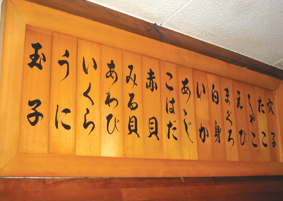 穴子
たこ
しゃこ
えび
まぐろ
白身
いか
あじ
こはだ
赤貝
みる貝
あわび
いくら
うに
玉子